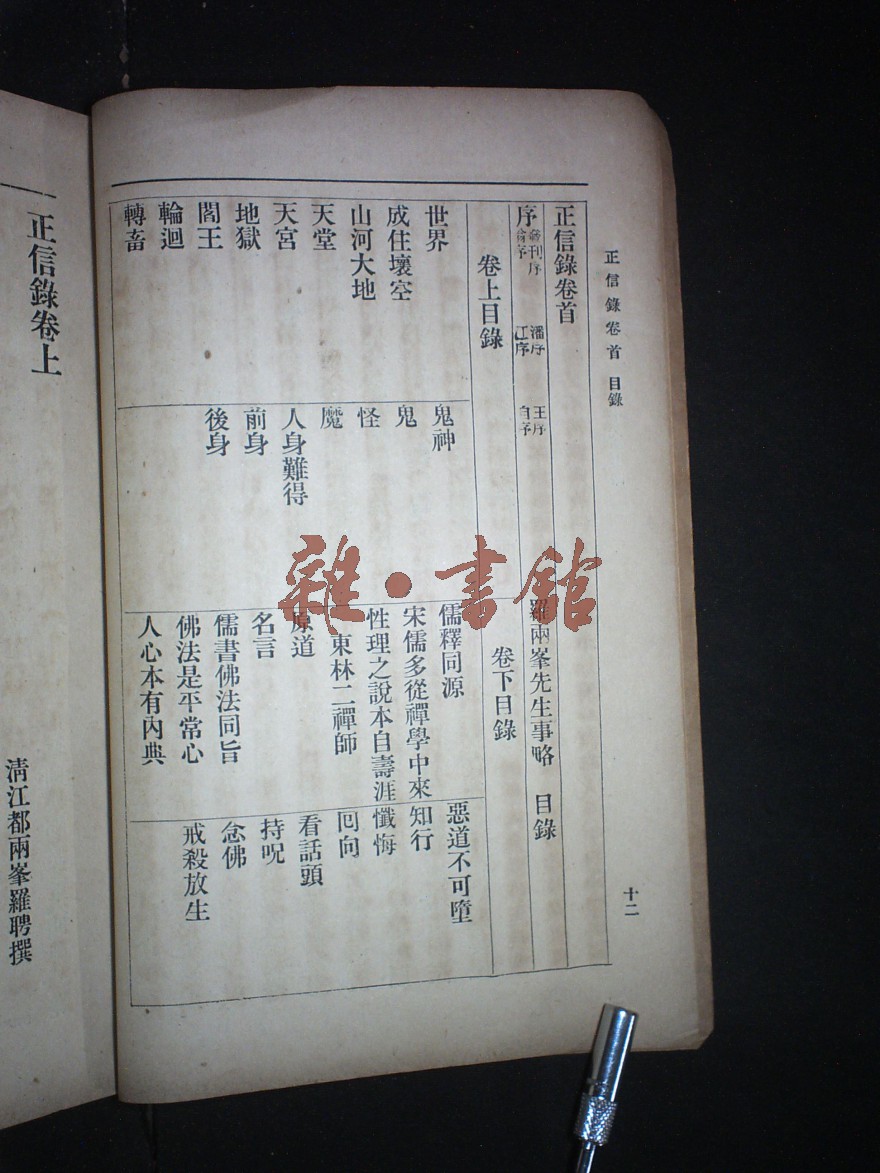 正信錄卷首 目錄
十二
正信錄卷首
序 重刊序 翁序 潘序 江序 王序 自序 羅兩峯先生事略 目錄
卷上目錄
世界
成住壞空
山河大地
天堂
天宮
地獄
閻王
輪迴
轉畜
鬼神
鬼
怪
魔
人身難得
前身
後身
卷下目錄
儒釋同源
宋儒多從禪學中來
性理之說本自壽涯
東林二禪師
原道
名言
儒書佛法同旨
佛法是平常心
人心本有內典
惡道不可墮
知行
懺悔
回向
看話頭
持呪
念佛
戒殺放生
正信錄卷上
清江都兩峯羅聘撰
雜·書館